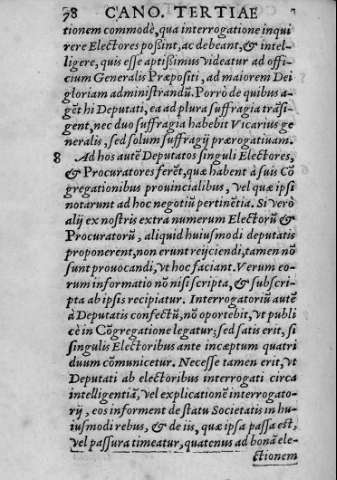 78 CANO. TERTIAE
tionem commodè, qua interrogatione inqui
rere Electores poßint, ac debeant, & intel-
ligere, quis esse aptißimus videatur ad offi-
cium Generalis Præpositi, ad maiorem Dei
gloriam administrandū. Porrò de quibus a-
gēt hi Deputati, ea ad plura suffragia trāsi-
gent, nec duo suffragia habebit Vicarius ge
neralis, sed solum suffragij prærogatiuam.
8 Ad hos autē Deputatos singuli Electores,
& Procuratores ferēt, quæ habent à suis Cō
gregationibus prouincialibus, vel quæ ipsi
notarunt ad hoc negotiū pertinētia. Si verò
alij ex nostris extra numerum Electorū &
Procuratorū, aliquid huiusmodi deputatis
proponerent, non erunt reijciendi, tamen nō
sunt prouocandi, vt hoc faciant. Verum eo-
rum informatio nō nisi scripta, & subscri-
pta ab ipsis recipiatur. Interrogatoriū autē
à Deputatis confectū, nō oportebit, vt publi
cè in Cōgregatione legatur: sed satis erit, si
singulis Electoribus ante inceptum quatri
duum cōmunicetur. Necesse tamen erit, vt
Deputati ab electoribus interrogati circa
intelligentiā, vel explicationē interrogato-
rij, eos informent de statu Societatis in hu-
iusmodi rebus, & de iis, quæ ipsa passa est,
vel passura timeatur, quatenus ad bonā ele-
ctionem